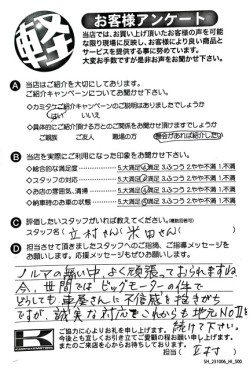 軽
お客様アンケート
当店では、お買い上げ頂いたお客様の声を可能
な限り現場に反映し、お客様により良い商品と
サービスを提供する事に努めています。
大変お手数ですが是非お声をお聞かせ下さい。
A 当店はご紹介を大切にしております。
ご紹介キャンペーンについてお聞かせ下さい。
◇カミタケご紹介キャンペーンのご説明はありましたでしょうか
はい いいえ
◇具体的にご紹介頂ける方とのご関係をお聞かせ頂けますでしょうか
ご親族 ご友人 職場の方 機会があれば紹介したい
B 当店を実際にご利用になった印象をお聞かせ下さい。
◇総合的な満足度 5大満足 4満足 3ふつう 2やや不満 1不満
◇スタッフの対応 5大満足 4満足 3ふつう 2やや不満 1不満
◇お店の雰囲気、清掃 5大満足 4満足 3ふつう 2やや不満 1不満
◇納車時のお車の状態 5大満足 4満足 3ふつう 2やや不満 1不満
C 評価したいスタッフがいれば教えてください。(複数回答可)
スタッフ名( 立村さん 米田さん )
D 担当させて頂きましたスタッフへのご指摘、ご指導メッセージを
お願いします。応援メッセージもぜひお願いします。
ノルマの無い中、よく頑張っておられますね
今、世間ではビッグモーターの件で
どうしても車屋さんに不信感を抱きがち
ですが、誠実な対応をこれからも地元No11を
続けて下さい。
ご協力に心よりお礼を申し上げます。
今後とも宜しくお引き立てご愛顧の程お願い申し上げます。
またのご来店を心からお待ちしております。
担当( 立村 )
SH_231006_HI_500